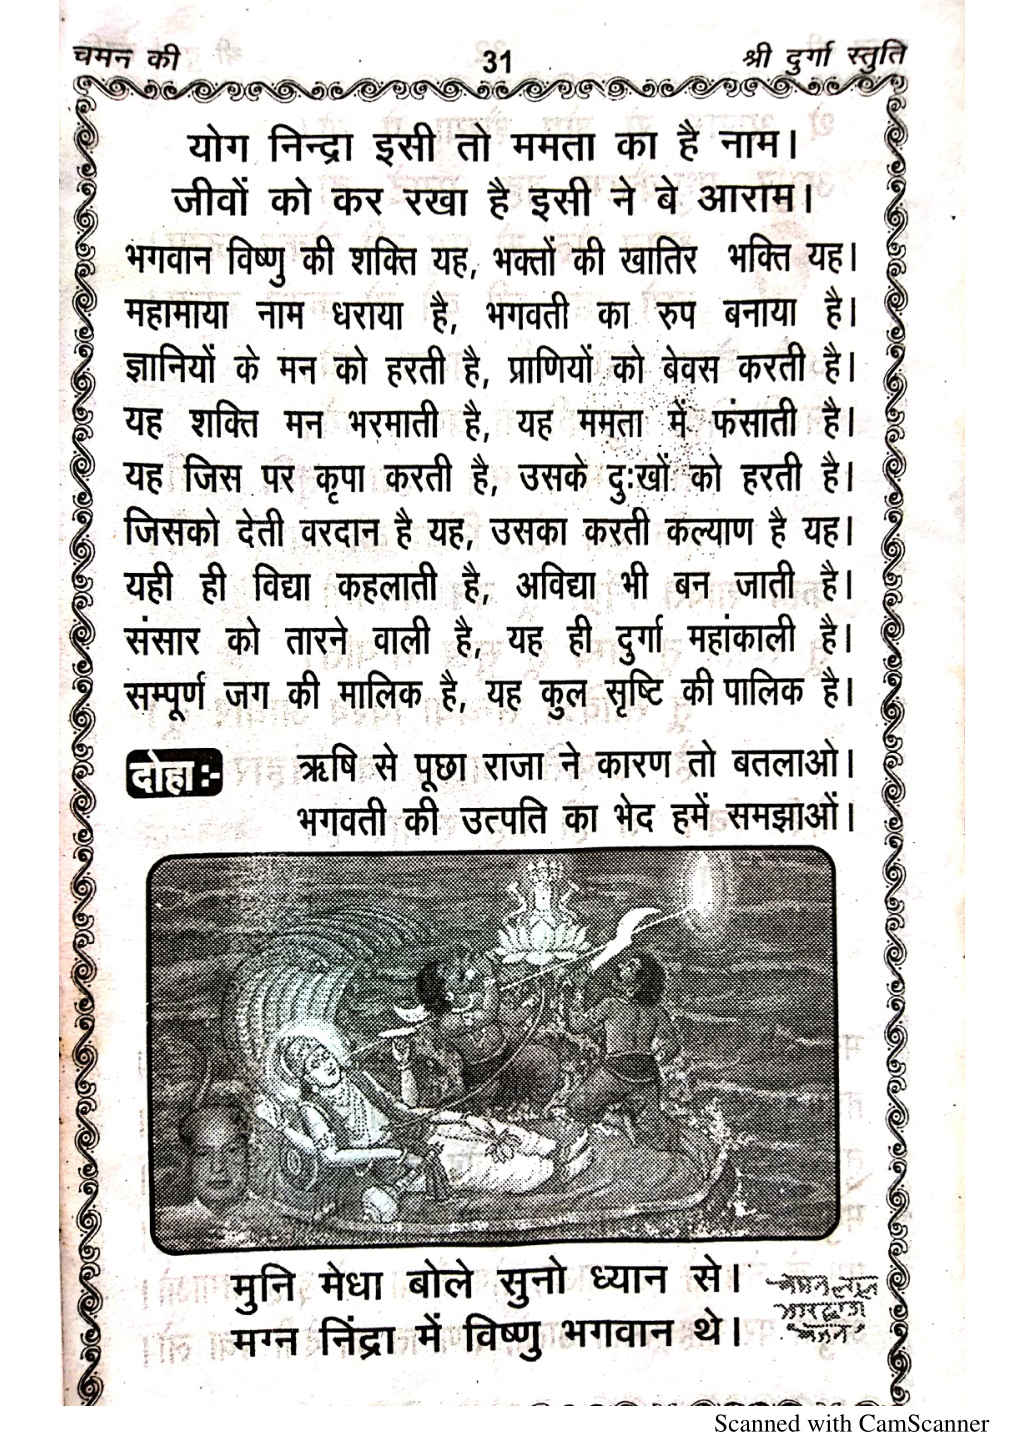 चमन की 31 श्री दुर्गा स्तुति
योग निन्द्रा इसी तो ममता का है नाम।
जीवों को कर रखा है इसी ने बे आराम।
भगवान विष्णु की शक्ति यह, भक्तों की खातिर भक्ति यह।
महामाया नाम धराया है, भगवती का रुप बनाया है।
ज्ञानियों के मन को हरती है, प्राणियों को बेवस करती है।
यह शक्ति मन भरमाती है, यह ममता में फंसाती है।
यह जिस पर कृपा करती है, उसके दुःखों को हरती है।
जिसको देती वरदान है यह, उसका करती कल्याण है यह।
यही ही विद्या कहलाती है, अविद्या भी बन जाती है।
संसार को तारने वाली है, यह ही दुर्गा महांकाली है।
सम्पूर्ण जग की मालिक है, यह कुल सृष्टि की पालिक है।
दोहा:- ऋषि से पूछा राजा ने कारण तो बतलाओ।
भगवती की उत्पति का भेद हमें समझाओं।
मुनि मेधा बोले सुनो ध्यान से।
मग्न निंद्रा में विष्णु भगवान थे।
चमन लाल
भारद्वाज
चमन
Scanned with CamScanner